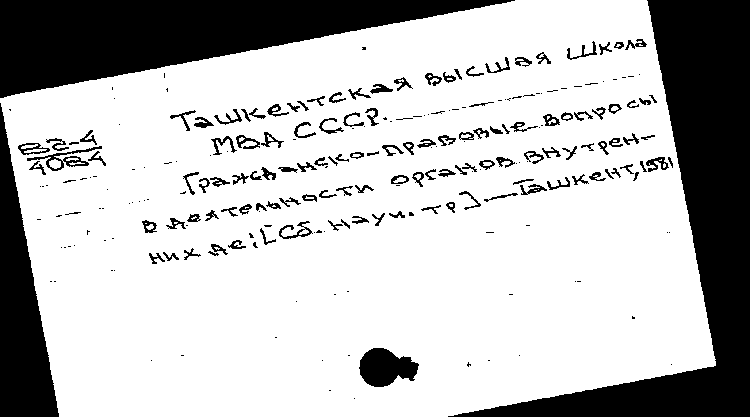 Ташкентская высшая школа
МВД СССР.
В2-4
4084
Гражданско-правовые вопросы
в деятельности органов внутрен-
них дел: [Сб. науч. тр]. — Ташкент, 1981